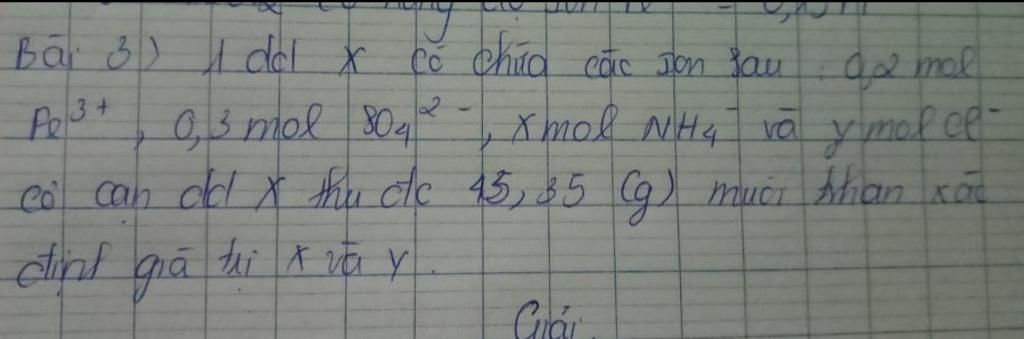 Bài 3) 1 dd X có chứa các ion sau: 0,2 mol
Fe³⁺, 0,3 mol SO₄²⁻, x mol NH₄⁻ và y mol Cl⁻
cô cạn dd X thu đc 45,35 (g) muối khan xác
định giá trị x và y.
Giải